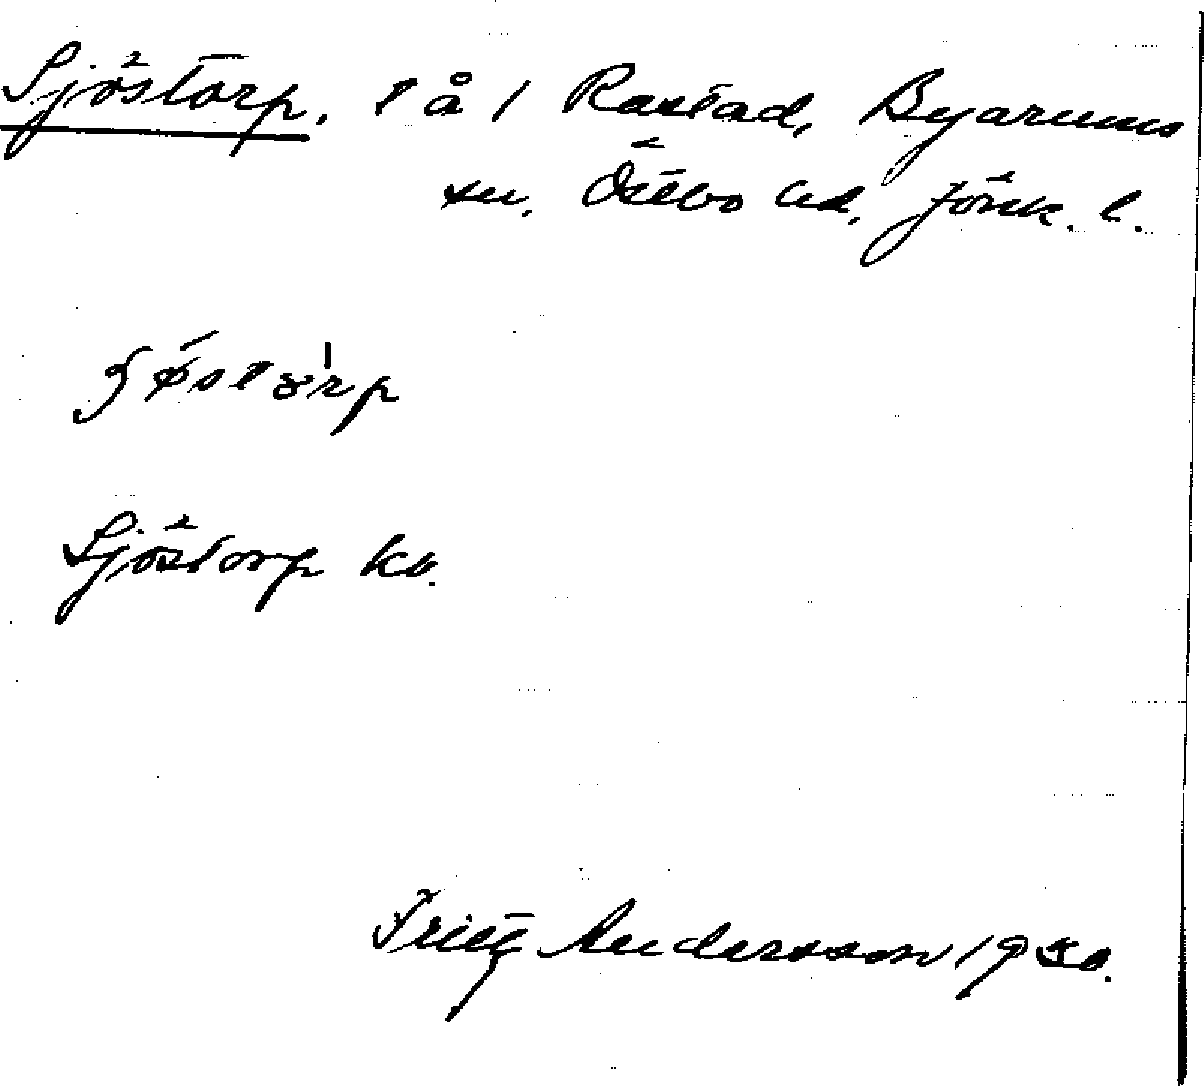 Sjöstorp. t å 1 Rastad, Byarums
sn. Östbo hd, Jönk. l.
Sjöstorp ka.
Fritz Andersson 1930.